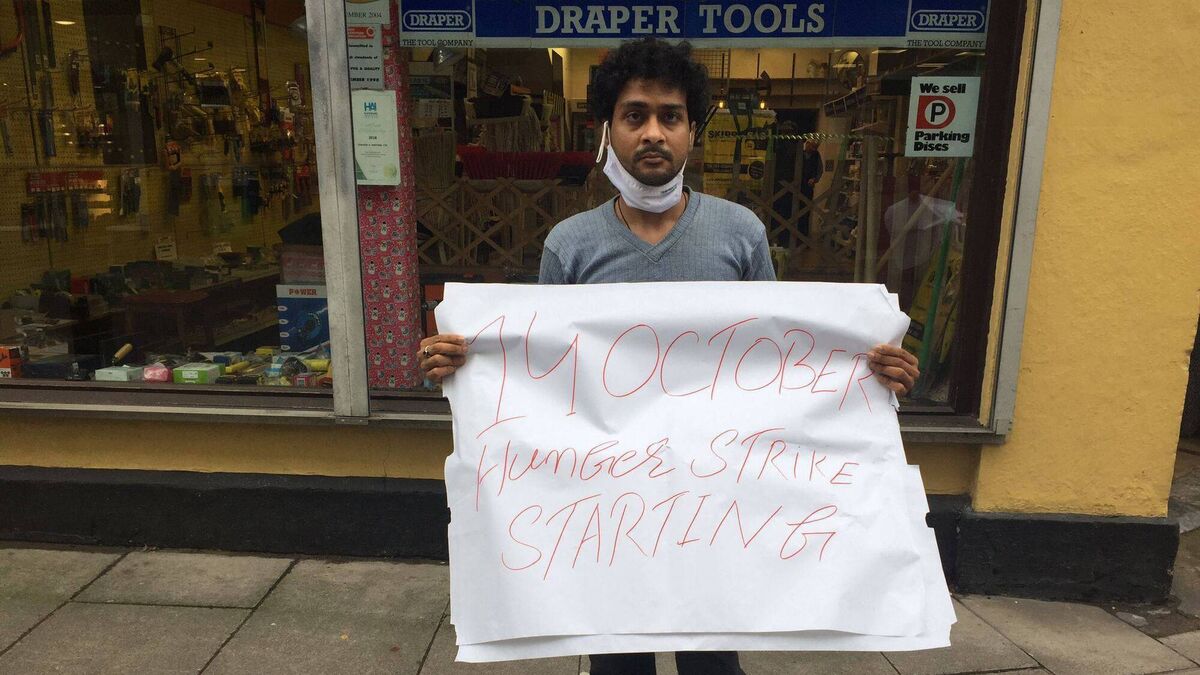 DRAPER
THE TOOL COMPANY
DRAPER TOOLS
DRAPER
THE TOOL COMPANY
MBER 2004
HAI
2018
We sell
P
Parking
Discs
POWER
14 OCTOBER
HUNGER STRIKE
STARTING